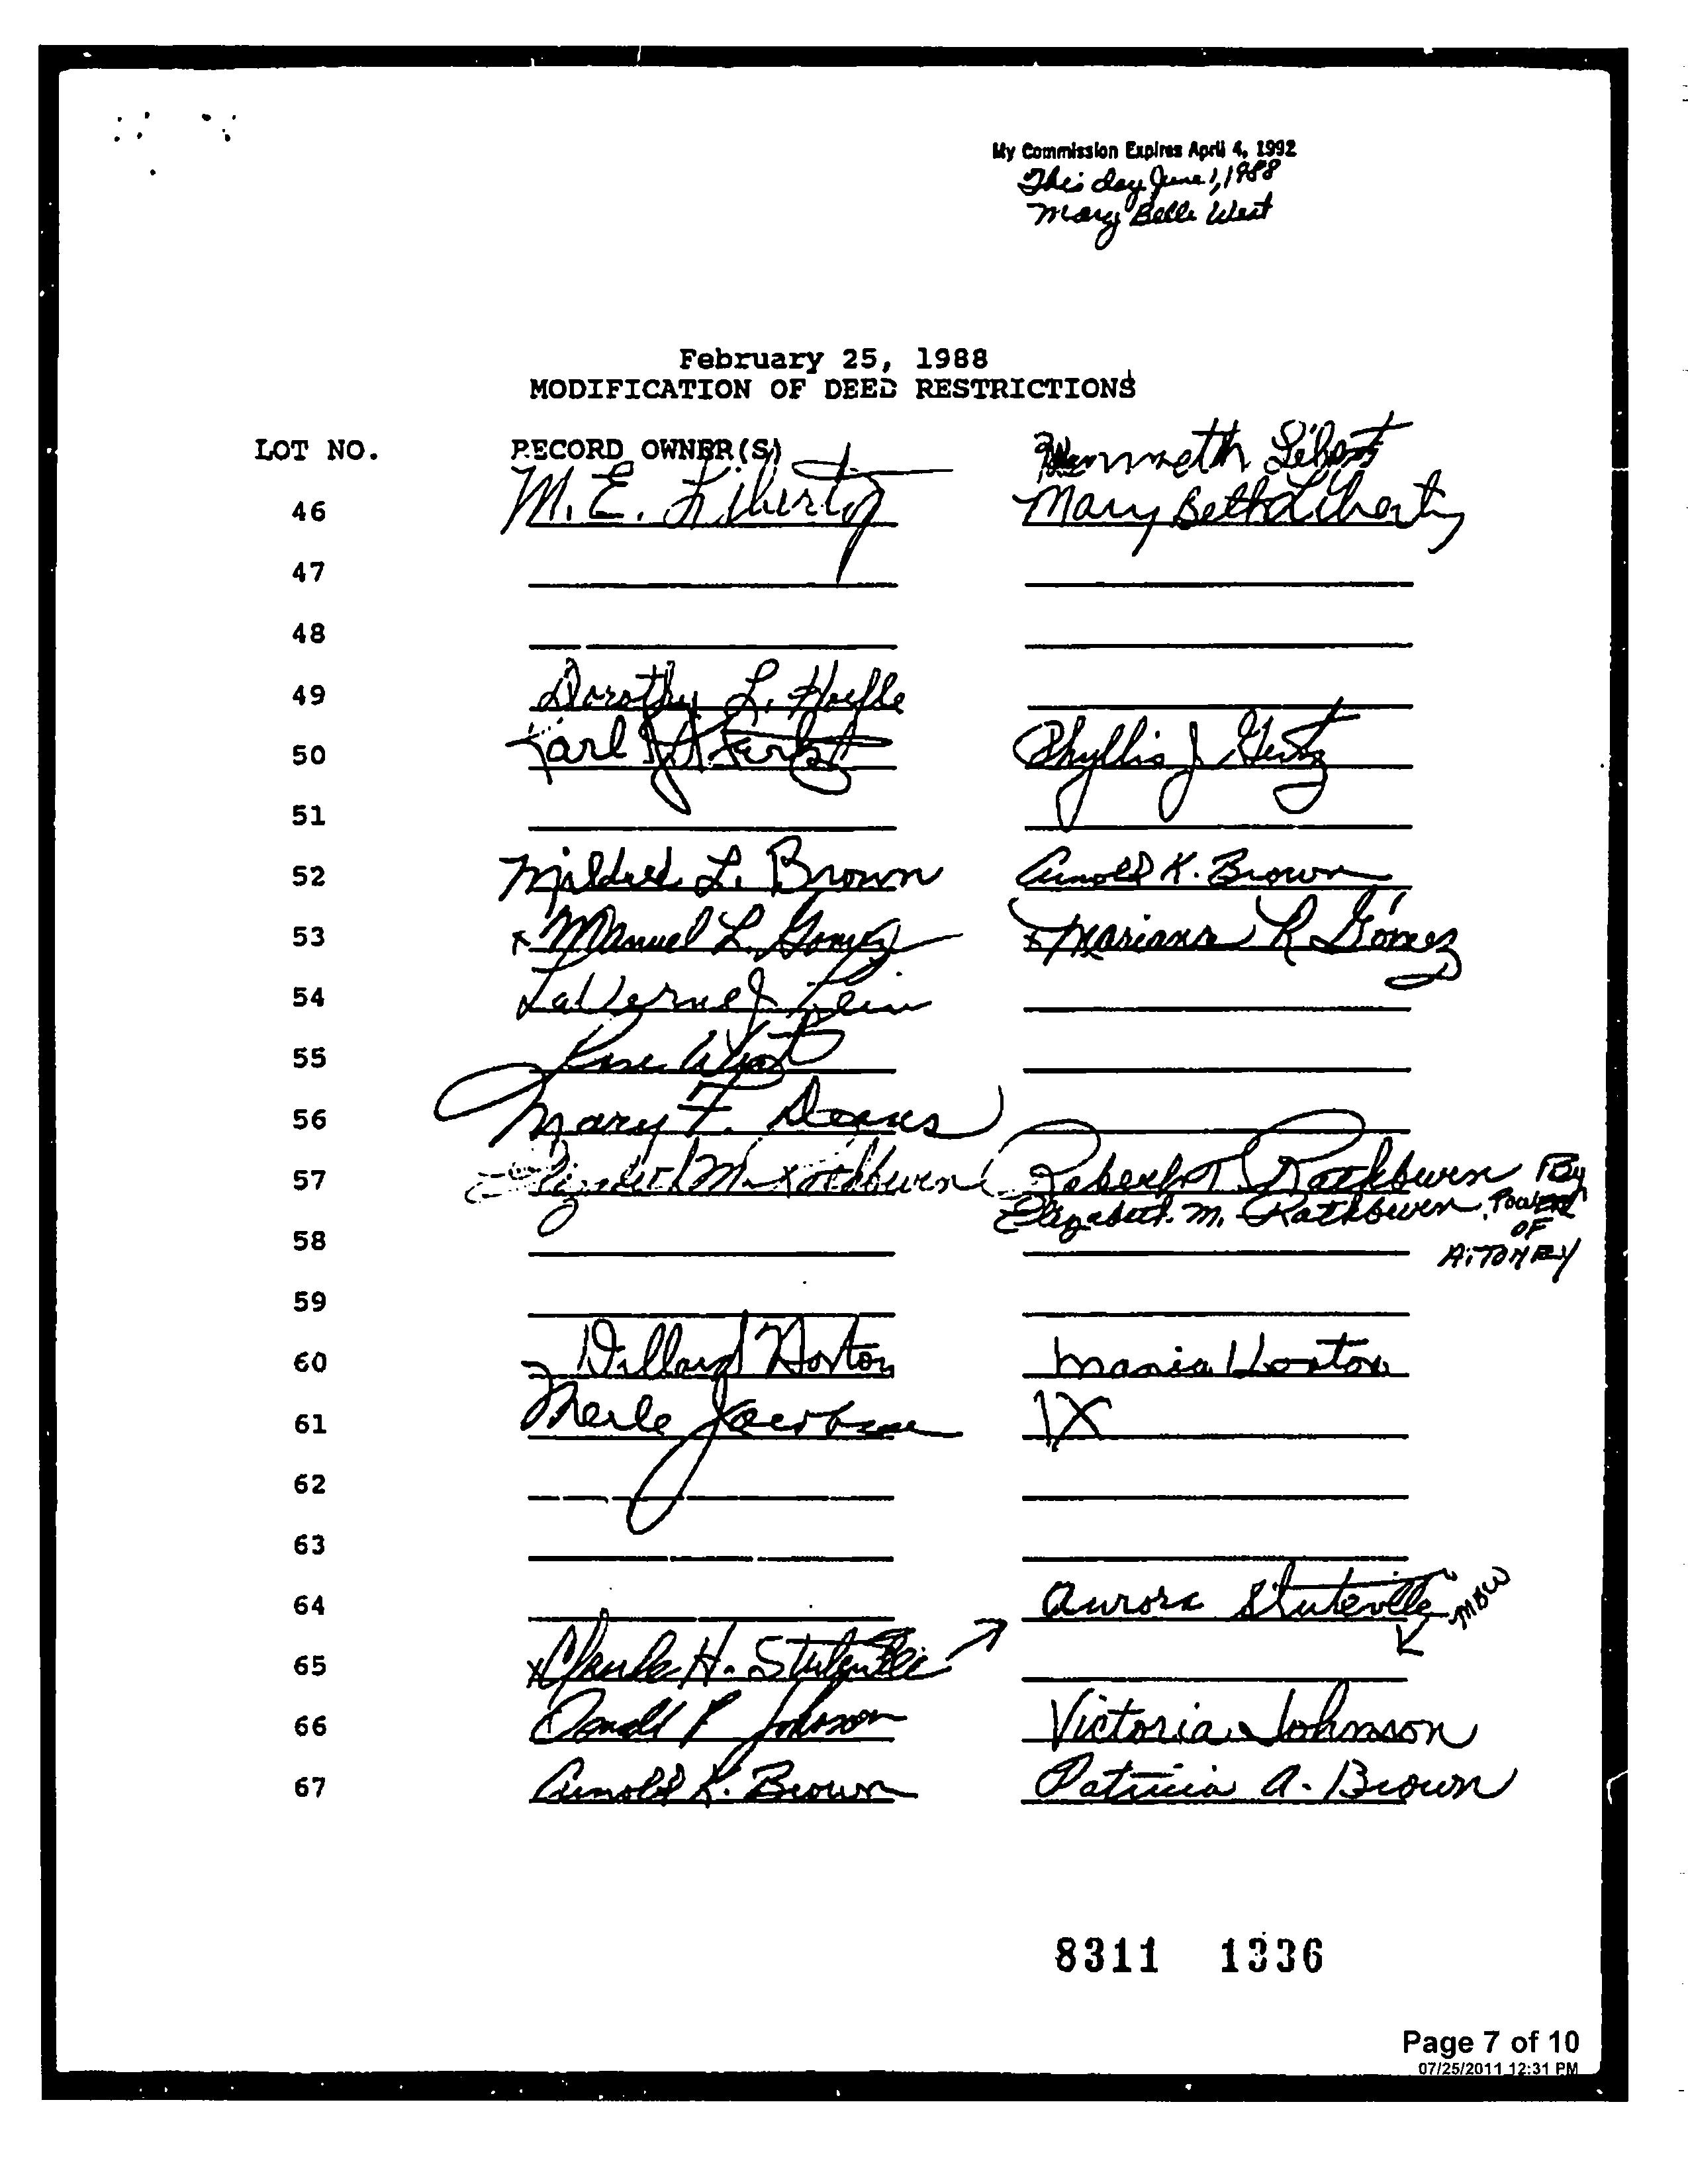 My Commission Expires April 4, 1992
This day June 1, 1988
Mary Belle West
February 25, 1988
MODIFICATION OF DEED RESTRICTIONS
LOT NO. RECORD OWNER(S) Kenneth Liberty
46 M. E. Liberty Mary Beth Liberty
47
48
49 Dorothy L. Hoefle
50 Karl Phyllis J Gertz
51
52 Mildred L. Brown Arnold K. Brown
53 x Manuel L. Gomez x Mariana R Gómez
54 LaVerne J
55
56 Mary F. Deans
57 Elizabeth M. Rathburn Robert T. Rathburn By
Elizabeth M. Rathburn Power
58 OF
ATTONEY
59
60 Dillard Horton Maria Horton
61 Merle Jacobsen 1X
62
63
64 Aurora Stuteville MBW
65 x Claude H. Stuteville
66 Donald P Johnson Victoria Johnson
67 Arnold K. Brown Patricia A. Brown
8311 1336
Page 7 of 10
07/25/2011 12:31 PM